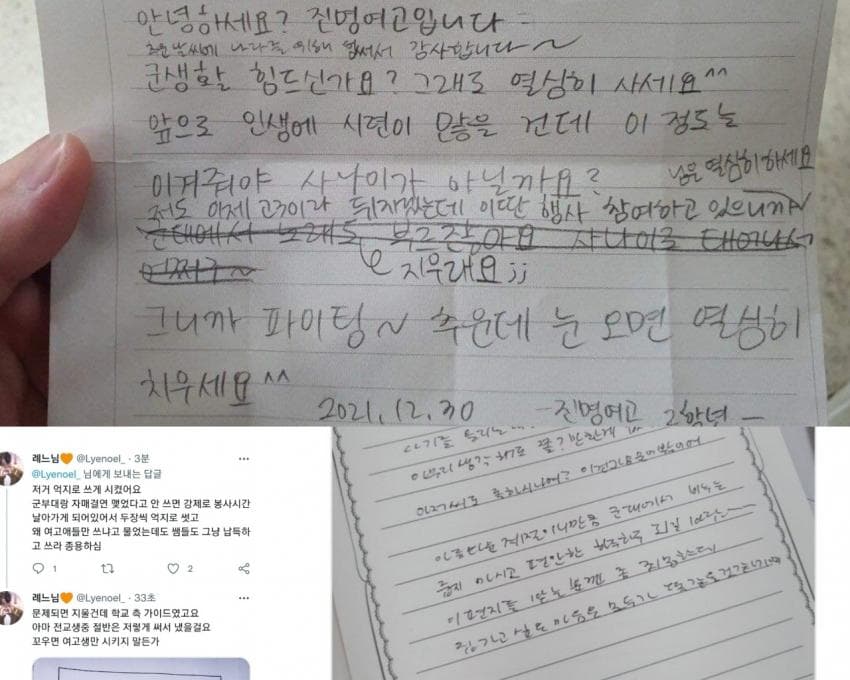 안녕하세요? 진명여고입니다
추운 날씨에 나라를 위해 힘써서 감사합니다~
군생활 힘드신가요? 그래도 열심히 사세요^^
앞으로 인생에 시련이 많을 건데 이 정도는
이겨줘야 사나이가 아닐까요?
님은 열심히 하세요
저도 이제 고3이라 뒤지겠는데 이딴 행사 참여하고 있으니까~
군대에서 노래도 부르잖아요 사나이로 태어나서
어쩌구~
지우래요;;
그니까 파이팅~ 추운데 눈 오면 열심히
치우세요^^
2021.12.30 -진명여고 2학년-
레느님🧡 @Lyenoel_ · 3분
@Lyenoel_ 님에게 보내는 답글
저거 억지로 쓰게 시켰어요
군부대랑 자매결연 맺었다고 안 쓰면 강제로 봉사시간
날아가게 되어있어서 두장씩 억지로 썻고
왜 여고애들만 쓰냐고 물었는데도 쌤들도 그냥 납득하
고 쓰라 종용하심
1 2
레느님🧡 @Lyenoel_ · 33초
문제되면 지울건데 학교 측 가이드였고요
아마 전교생중 절반은 저렇게 써서 냈을걸요
꼬우면 여고생만 시키지 말든가
아무리 생각해도
아름다운 계절이니만큼 군대에서 비누는
줍지 마시고 편안한 하루하루 되길 바랍니다
이 편지를